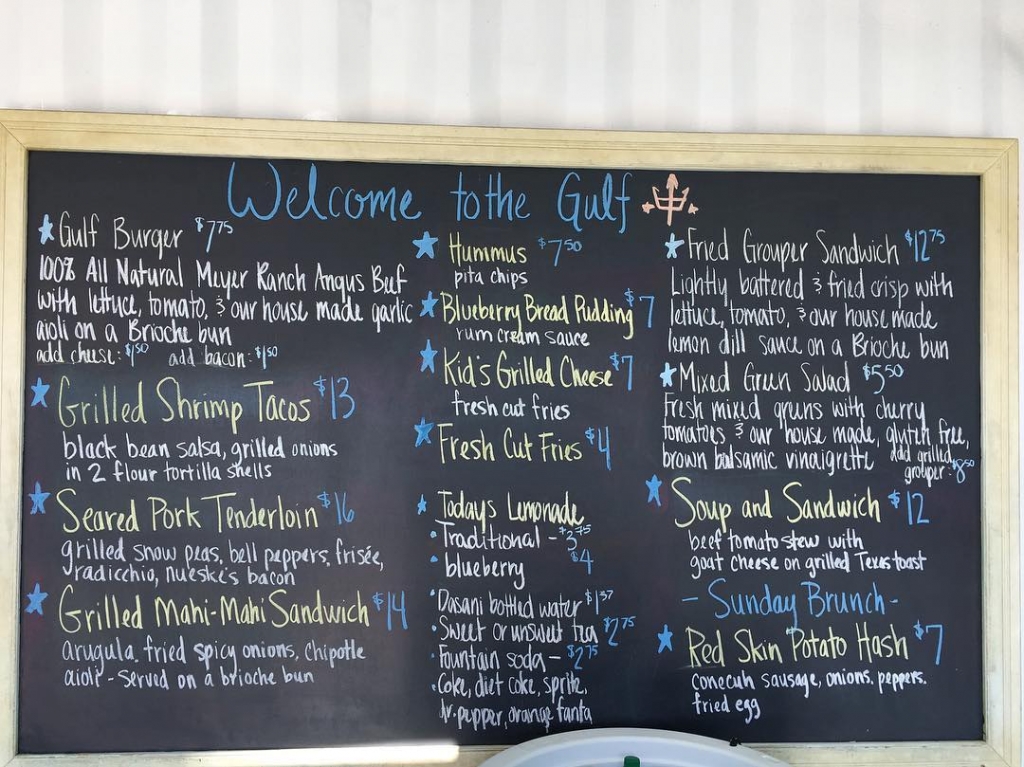 Welcome to the Gulf
Gulf Burger $7.75
100% All Natural Meyer Ranch Angus Beef
with lettuce, tomato, & our house made garlic
aioli on a Brioche bun
add cheese: $1.50 add bacon: $1.50
Grilled Shrimp Tacos $13
black bean salsa, grilled onions
in 2 flour tortilla shells
Seared Pork Tenderloin $16
grilled snow peas, bell peppers, frisée,
radicchio, nueske's bacon
Grilled Mahi-Mahi Sandwich $14
arugula, fried spicy onions, chipotle
aioli - served on a brioche bun
Hummus $7.50
pita chips
Blueberry Bread Pudding $7
rum cream sauce
Kid's Grilled Cheese $7
fresh cut fries
Fresh Cut Fries $4
Todays Lemonade
Traditional - $3.75
blueberry $4
Dasani bottled water $1.37
Sweet or unsweet tea $2.75
Fountain soda - $2.75
Coke, diet coke, sprite,
dr. pepper, orange fanta
Fried Grouper Sandwich $12.75
Lightly battered & fried crisp with
lettuce, tomato, & our house made
lemon dill sauce on a Brioche bun
Mixed Green Salad $5.50
Fresh mixed greens with cherry
tomatoes & our house made, gluten free,
brown balsamic vinaigrette add grilled
grouper: $8.50
Soup and Sandwich $12
beef tomato stew with
goat cheese on grilled Texas toast
- Sunday Brunch -
Red Skin Potato Hash $7
conecuh sausage, onions, peppers,
fried egg